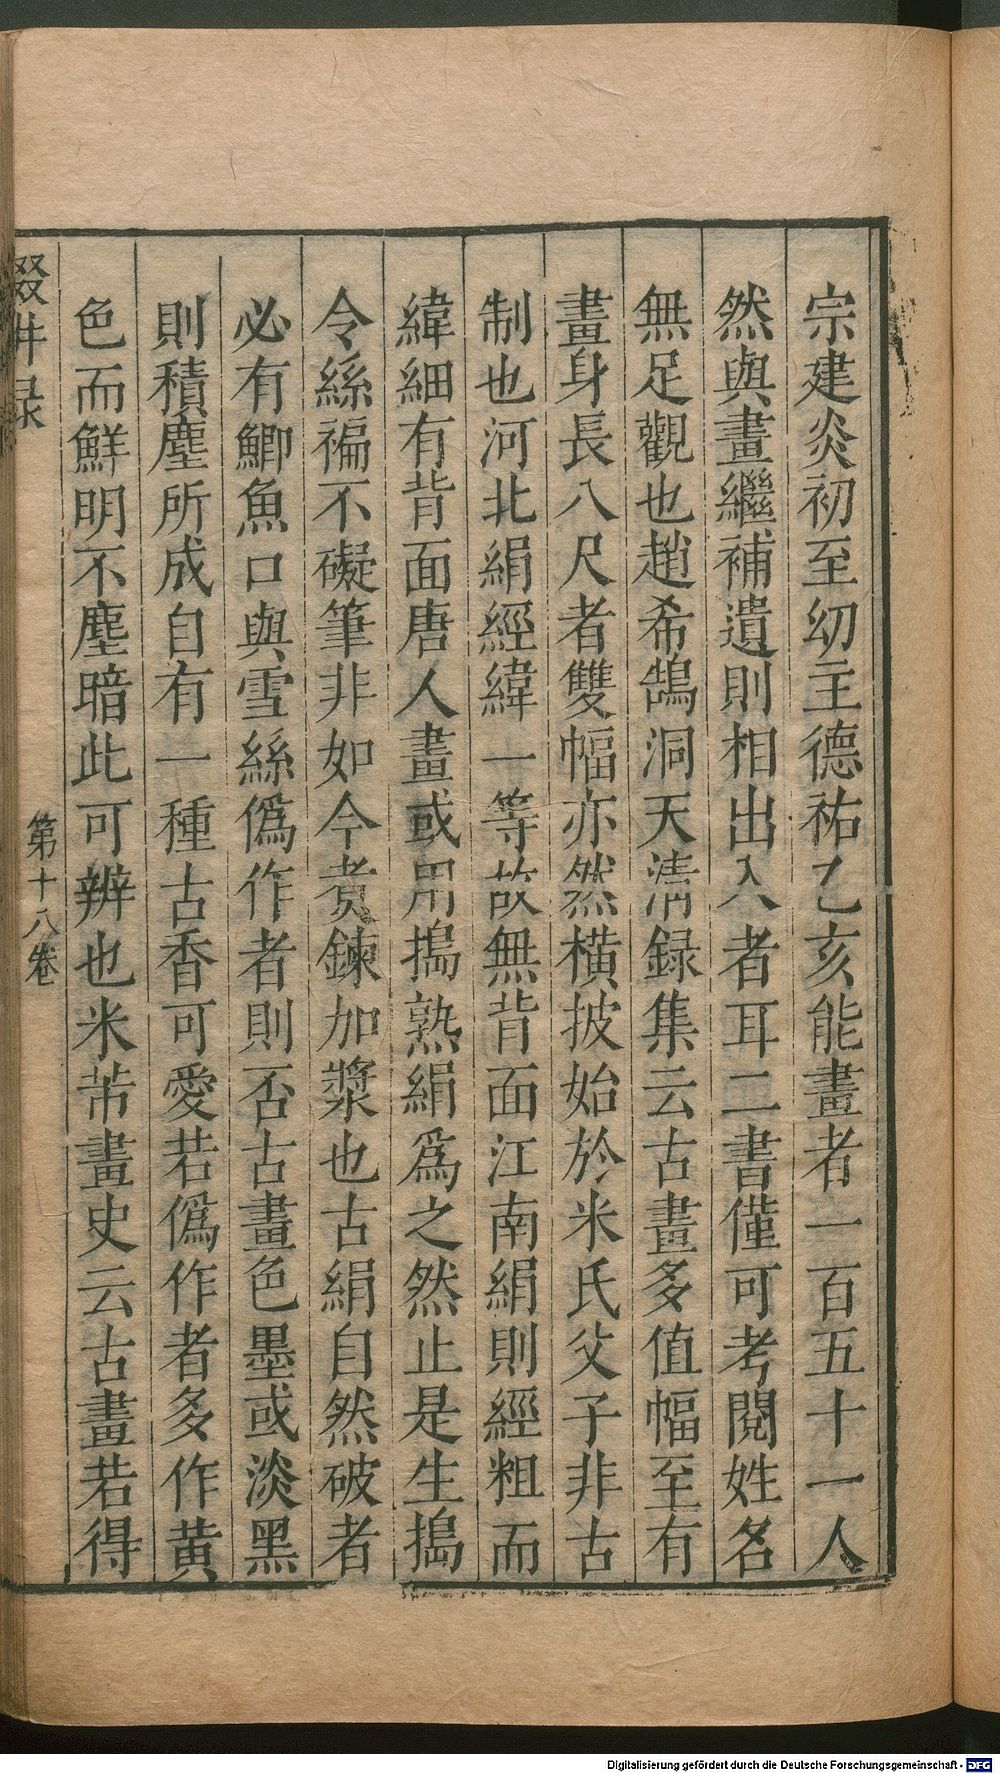 宗建炎初至幼主德祐乙亥能畫者一百五十一人
然與畫繼補遺則相出入者耳二書僅可考閱姓名
無足觀也趙希鵠洞天清録集云古畫多值幅至有
畫身長八尺者雙幅亦然橫披始於米氏父子非古
制也河北絹經緯一等故無背面江南絹則經粗而
緯細有背面唐人畫或用搗熟絹爲之然止是生搗
令絲褊不礙筆非如今煑鍊加漿也古絹自然破者
必有鯽魚口與雪絲僞作者則否古畫色墨或淡黑
則積塵所成自有一種古香可愛若僞作者多作黄
色而鮮明不塵暗此可辨也米芾畫史云古畫若得
輟畊录
第十八卷
Digitalisierung gefördert durch die Deutsche Forschungsgemeinschaft - DFG